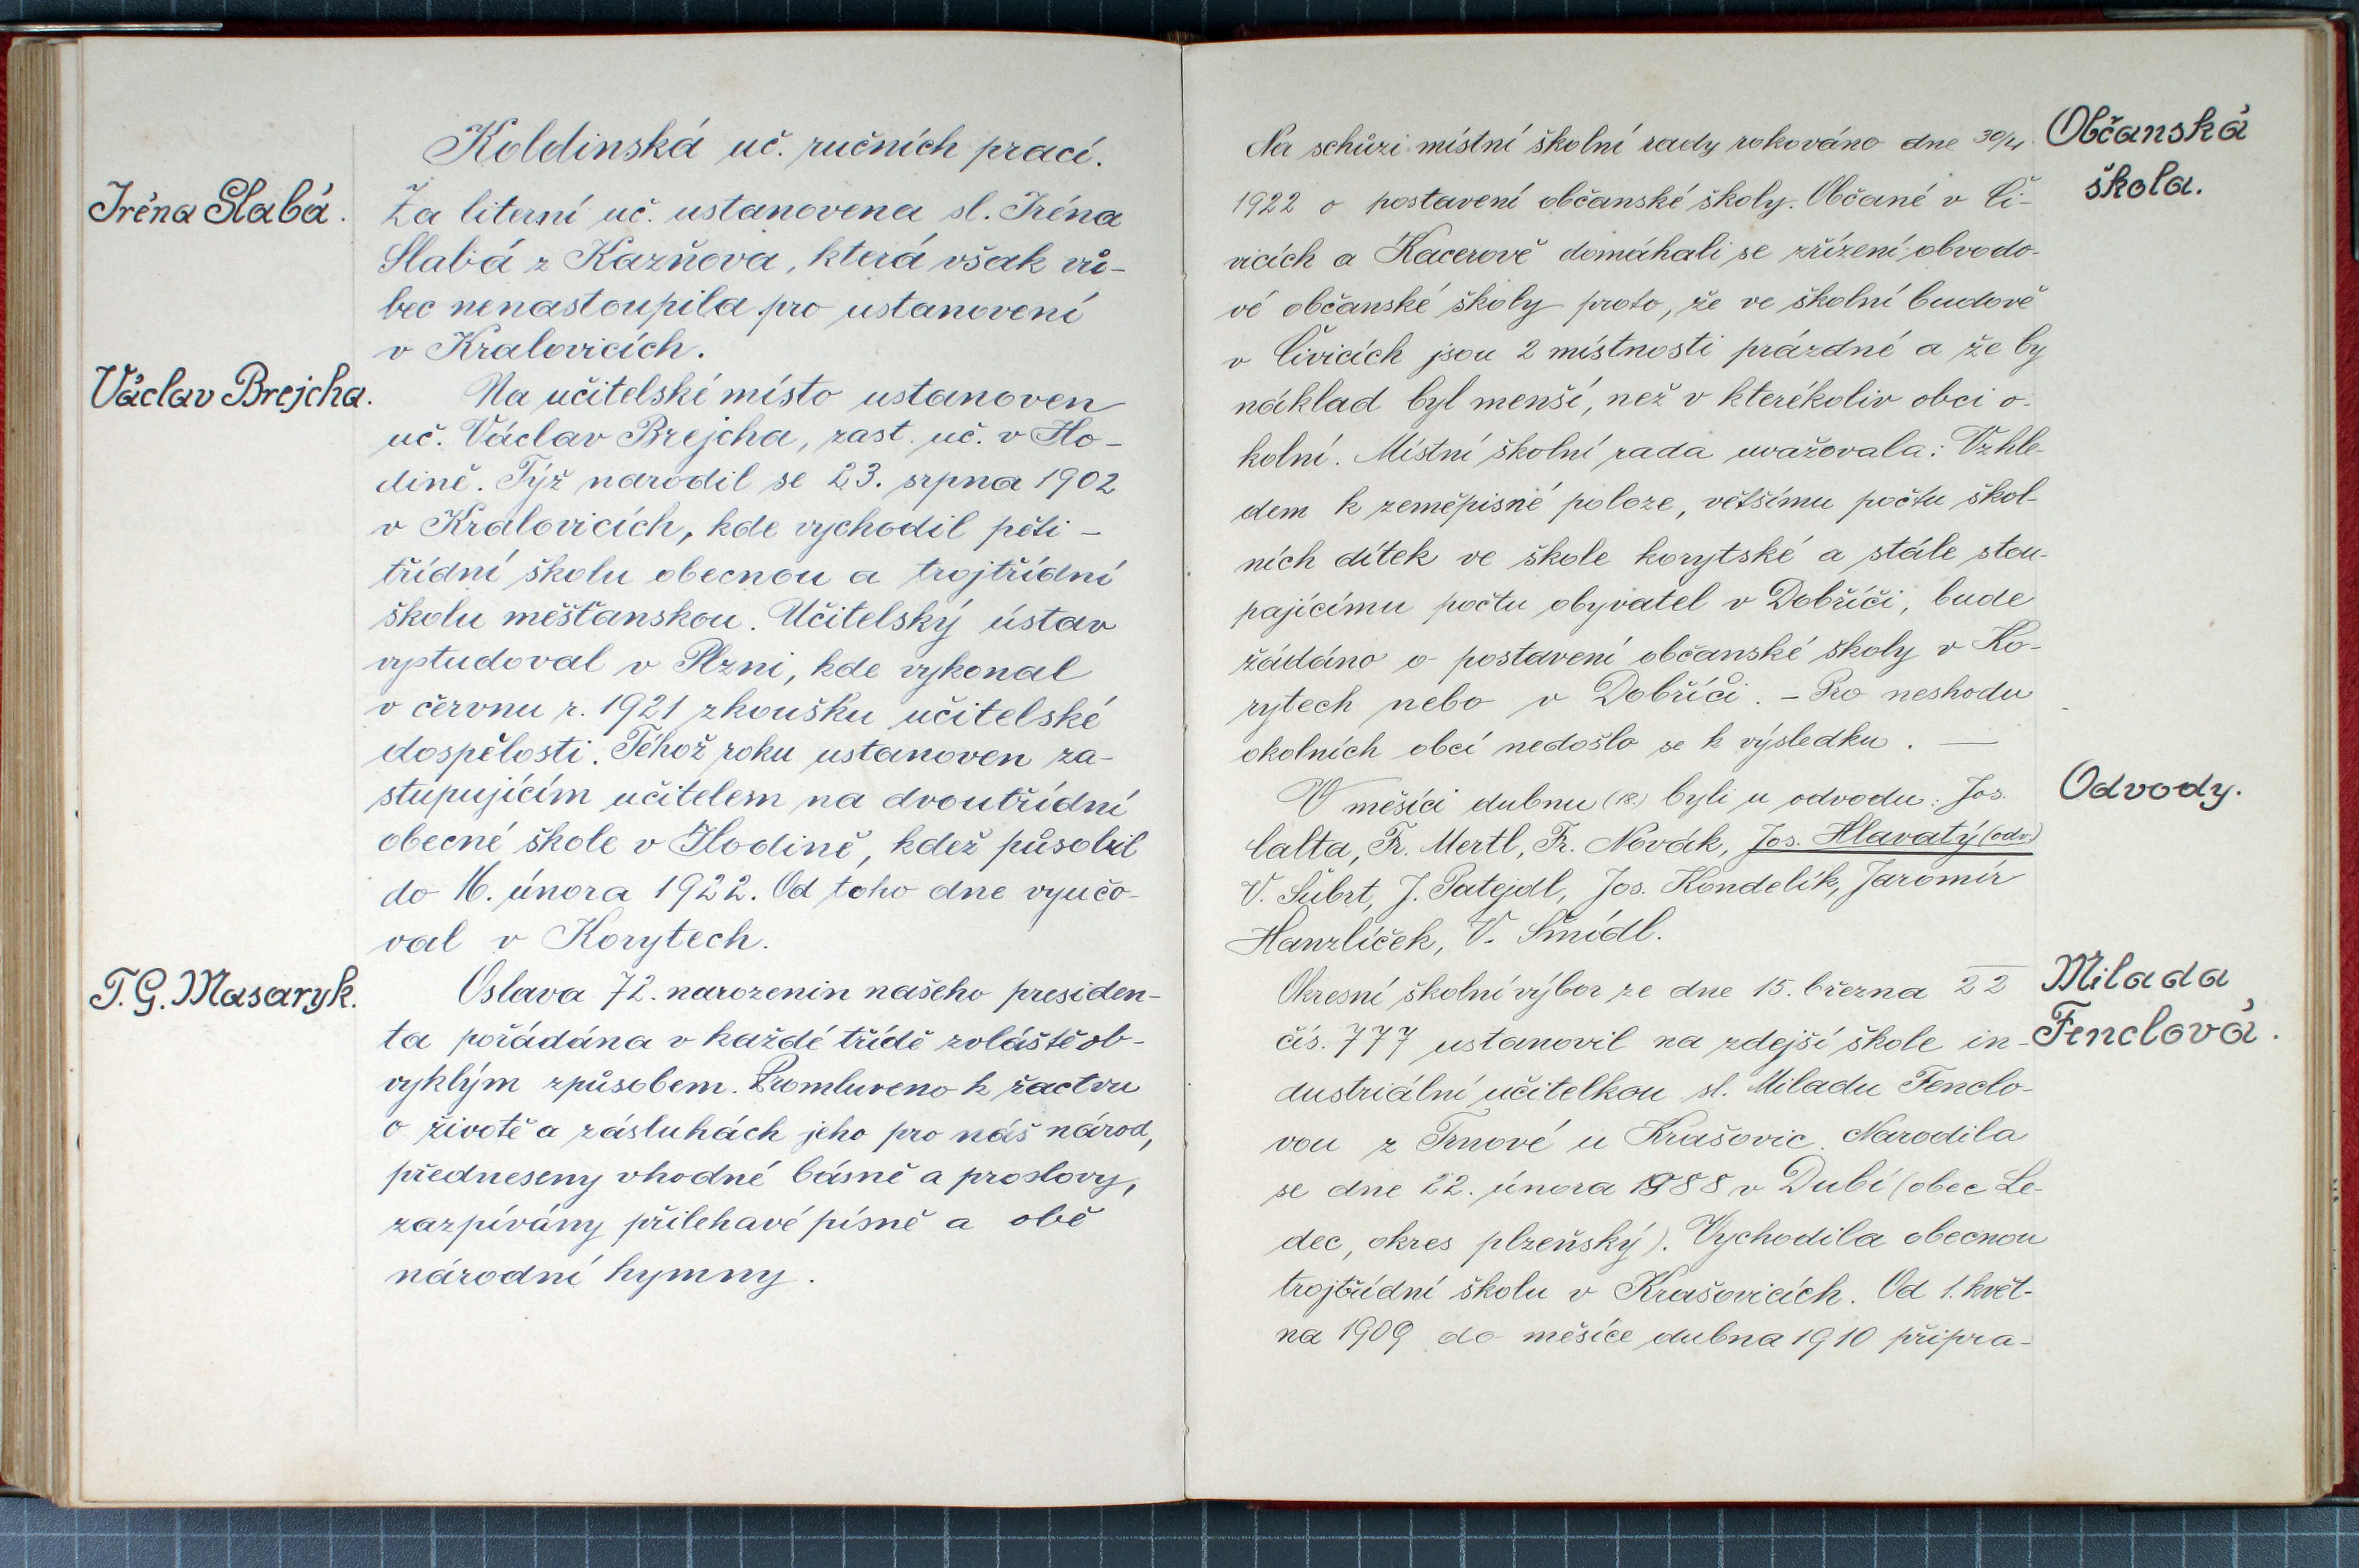 Koldinská uč. ručních prací.
Iréna Slabá.
Za literní uč. ustanovena sl. Iréna
Slabá z Kazňova, která však vů-
bec nenastoupila pro ustanovení
v Kralovicích.
Václav Brejcha.
Na učitelské místo ustanoven
uč. Václav Brejcha, zast. uč. v Ho-
dině. Týž narodil se 23. srpna 1902
v Kralovicích, kde vychodil pěti-
třídní školu obecnou a trojtřídní
školu měšťanskou. Učitelský ústav
vystudoval v Plzni, kde vykonal
v červnu r. 1921 zkoušku učitelské
dospělosti. Téhož roku ustanoven za-
stupujícím učitelem na dvoutřídní
obecné škole v Hodině, kdež působil
do 16. února 1922. Od toho dne vyučo-
val v Korytech.
T. G. Masaryk.
Oslava 72. narozenin našeho presiden-
ta pořádána v každé třídě zvláště ob-
vyklým způsobem. Promluveno k žactvu
o životě a zásluhách jeho pro náš národ,
předneseny vhodné básně a proslovy,
zazpívány přilehavé písně a obě
národní hymny.
Občanská
škola.
Na schůzi místní školní rady rokováno dne 30/4
1922 o postavení občanské školy. Občané v Či-
vicích a Kacerově domáhali se zřízení obvodo-
vé občanské školy proto, že ve školní budově
v Čivicích jsou 2 místnosti prázdné a že by
náklad byl menší, než v kterékoliv obci o-
kolní. Místní školní rada uvažovala: Vzhle-
dem k zeměpisné poloze, většímu počtu škol-
ních dítek ve škole korytské a stále stou-
pajícímu počtu obyvatel v Dobříči, bude
žádáno o postavení občanské školy v Ko-
rytech nebo v Dobříči. - Pro neshodu
okolních obcí nedošlo se k výsledku. —
Odvody.
V měsíci dubnu (18.) byli u odvodu: Jos.
Calta, Fr. Mertl, Fr. Novák, Jos. Hlavatý (odv.)
V. Šubrt, J. Patejdl, Jos. Kondelík, Jaromír
Hanzlíček, V. Šmídl.
Milada
Fenclová.
Okresní školní výbor ze dne 15. března 22
čís. 777 ustanovil na zdejší škole in-
dustriální učitelkou sl. Miladu Fenclo-
vou z Trnové u Krašovic. Narodila
se dne 22. února 1888 v Dubí (obec Le-
dec, okres plzeňský). Vychodila obecnou
trojtřídní školu v Krašovicích. Od 1. květ-
na 1909 do měsíce dubna 1910 připra-